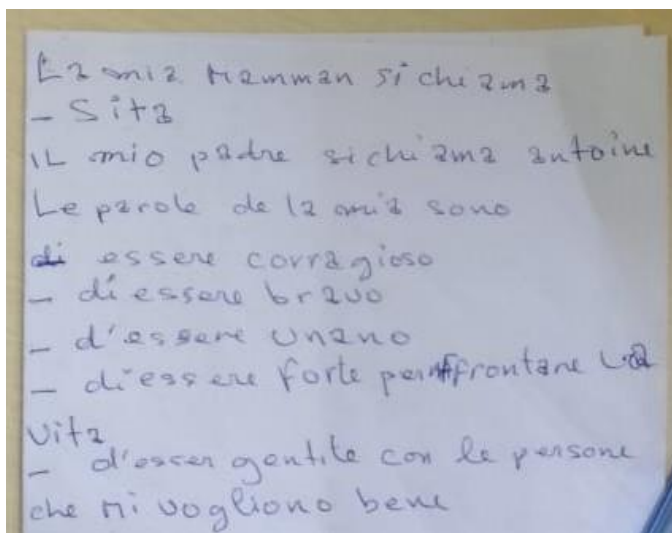 La mia Mamman si chiama
- Sita
IL mio padre si chiama antoine
Le parole de la mia sono
di essere corragioso
- di essere bravo
- d'essere unano
- di essere forte per affrontare La
vita
- d'esser gentile con le persone
che Mi vogliono bene